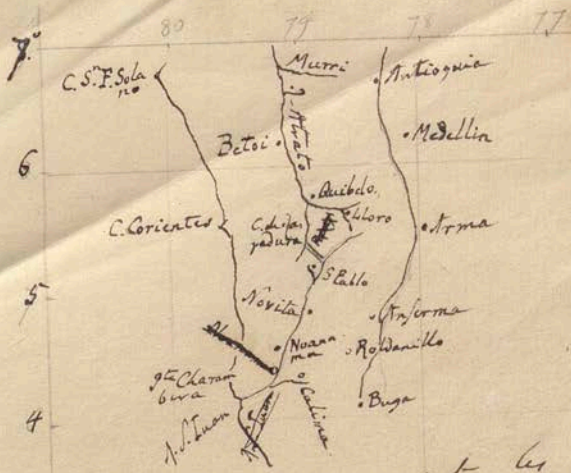 80 79 78 77
7°
C. Sn. F. Sola
no
Murri
R. Atrato
Antioquia
Betoi
Medellin
6
Quibdo
C. Corientes
C. de la Ras
padura
Lloro
Arma
S. Pablo
5
Novita
Anserma
Noana
ma
Roldanillo
gta Charam
bira
Calima
Buga
4
r. S. Juan